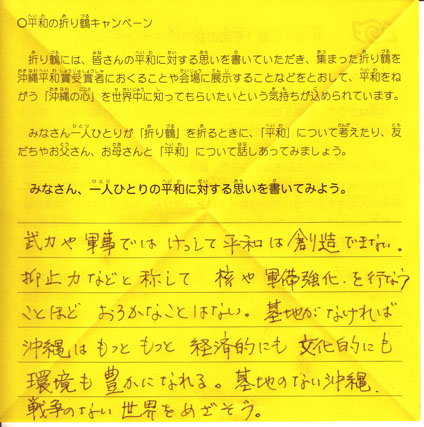 ○平和の折り鶴キャンペーン
折り鶴には、皆さんの平和に対する思いを書いていただき、集まった折り鶴を
沖縄平和賞受賞者におくることや会場に展示することなどをとおして、平和をね
がう「沖縄の心」を世界中に知ってもらいたいという気持ちが込められています。
みなさん一人ひとりが「折り鶴」を折るときに、「平和」について考えたり、友
だちやお父さん、お母さんと「平和」について話しあってみましょう。
みなさん、一人ひとりの平和に対する思いを書いてみよう。
武力や軍事では けっして平和は創造できない。
抑止力などと称して 核や軍備強化を行なう
ことほど おろかなことはない。基地がなければ
沖縄はもっともっと 経済的にも文化的にも
環境も豊かになれる。基地のない沖縄、
戦争のない世界をめざそう。